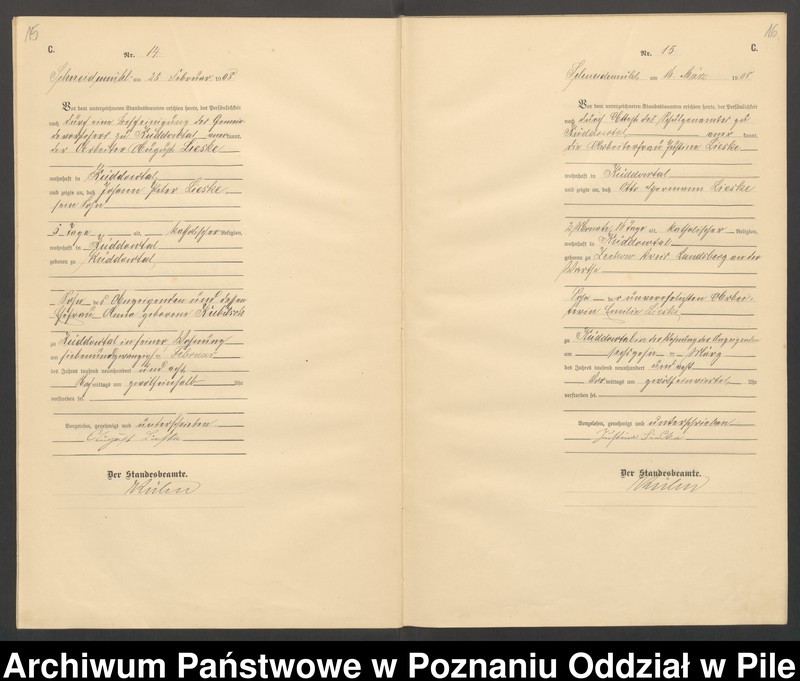 15
C.
Nr. 14
Schneidemühl am 25 Februar 1908
Vor dem unterzeichneten Standesbeamten erschien heute, der Persönlichkeit
nach durch eine Bescheinigung des Gemein-
devorstehers zu Küddowtal anerkannt,
der Arbeiter August Lieske
wohnhaft in Küddowtal
und zeigte an, daß Johann Peter Lieske
sein Sohn
5 Tage alt, katholischer Religion,
wohnhaft in Küddowtal
geboren zu Küddowtal
Sohn des Anzeigenden und dessen
Ehefrau geborene
zu Küddowtal in seiner Wohnung
am Februar
des Jahres tausend neunhundert und acht
mittags um Uhr
verstorben sei.
Vorgelesen, genehmigt und unterschrieben
August Lieske
Der Standesbeamte.
16
C.
Nr. 15
Schneidemühl am 16 März 1908
Vor dem unterzeichneten Standesbeamten erschien heute, der Persönlichkeit
nach durch Attest des zu
Küddowtal anerkannt,
die Arbeiterfrau Justine Lieske
wohnhaft in Küddowtal
und zeigte an, daß Otto Hermann Lieske
2 Monate, Tage alt, katholischer Religion,
wohnhaft in Küddowtal
geboren zu Zechow Kreis Landsberg an der
Warthe
Sohn der unverehelichten Arbei-
terin Emilie Lieske
zu Küddowtal in der Wohnung der Anzeigenden
am sechzehn März
des Jahres tausend neunhundert und acht
Vormittags um Uhr
verstorben sei.
Vorgelesen, genehmigt und unterschrieben
Justine Lieske
Der Standesbeamte.
Archiwum Państwowe w Poznaniu Oddział w Pile